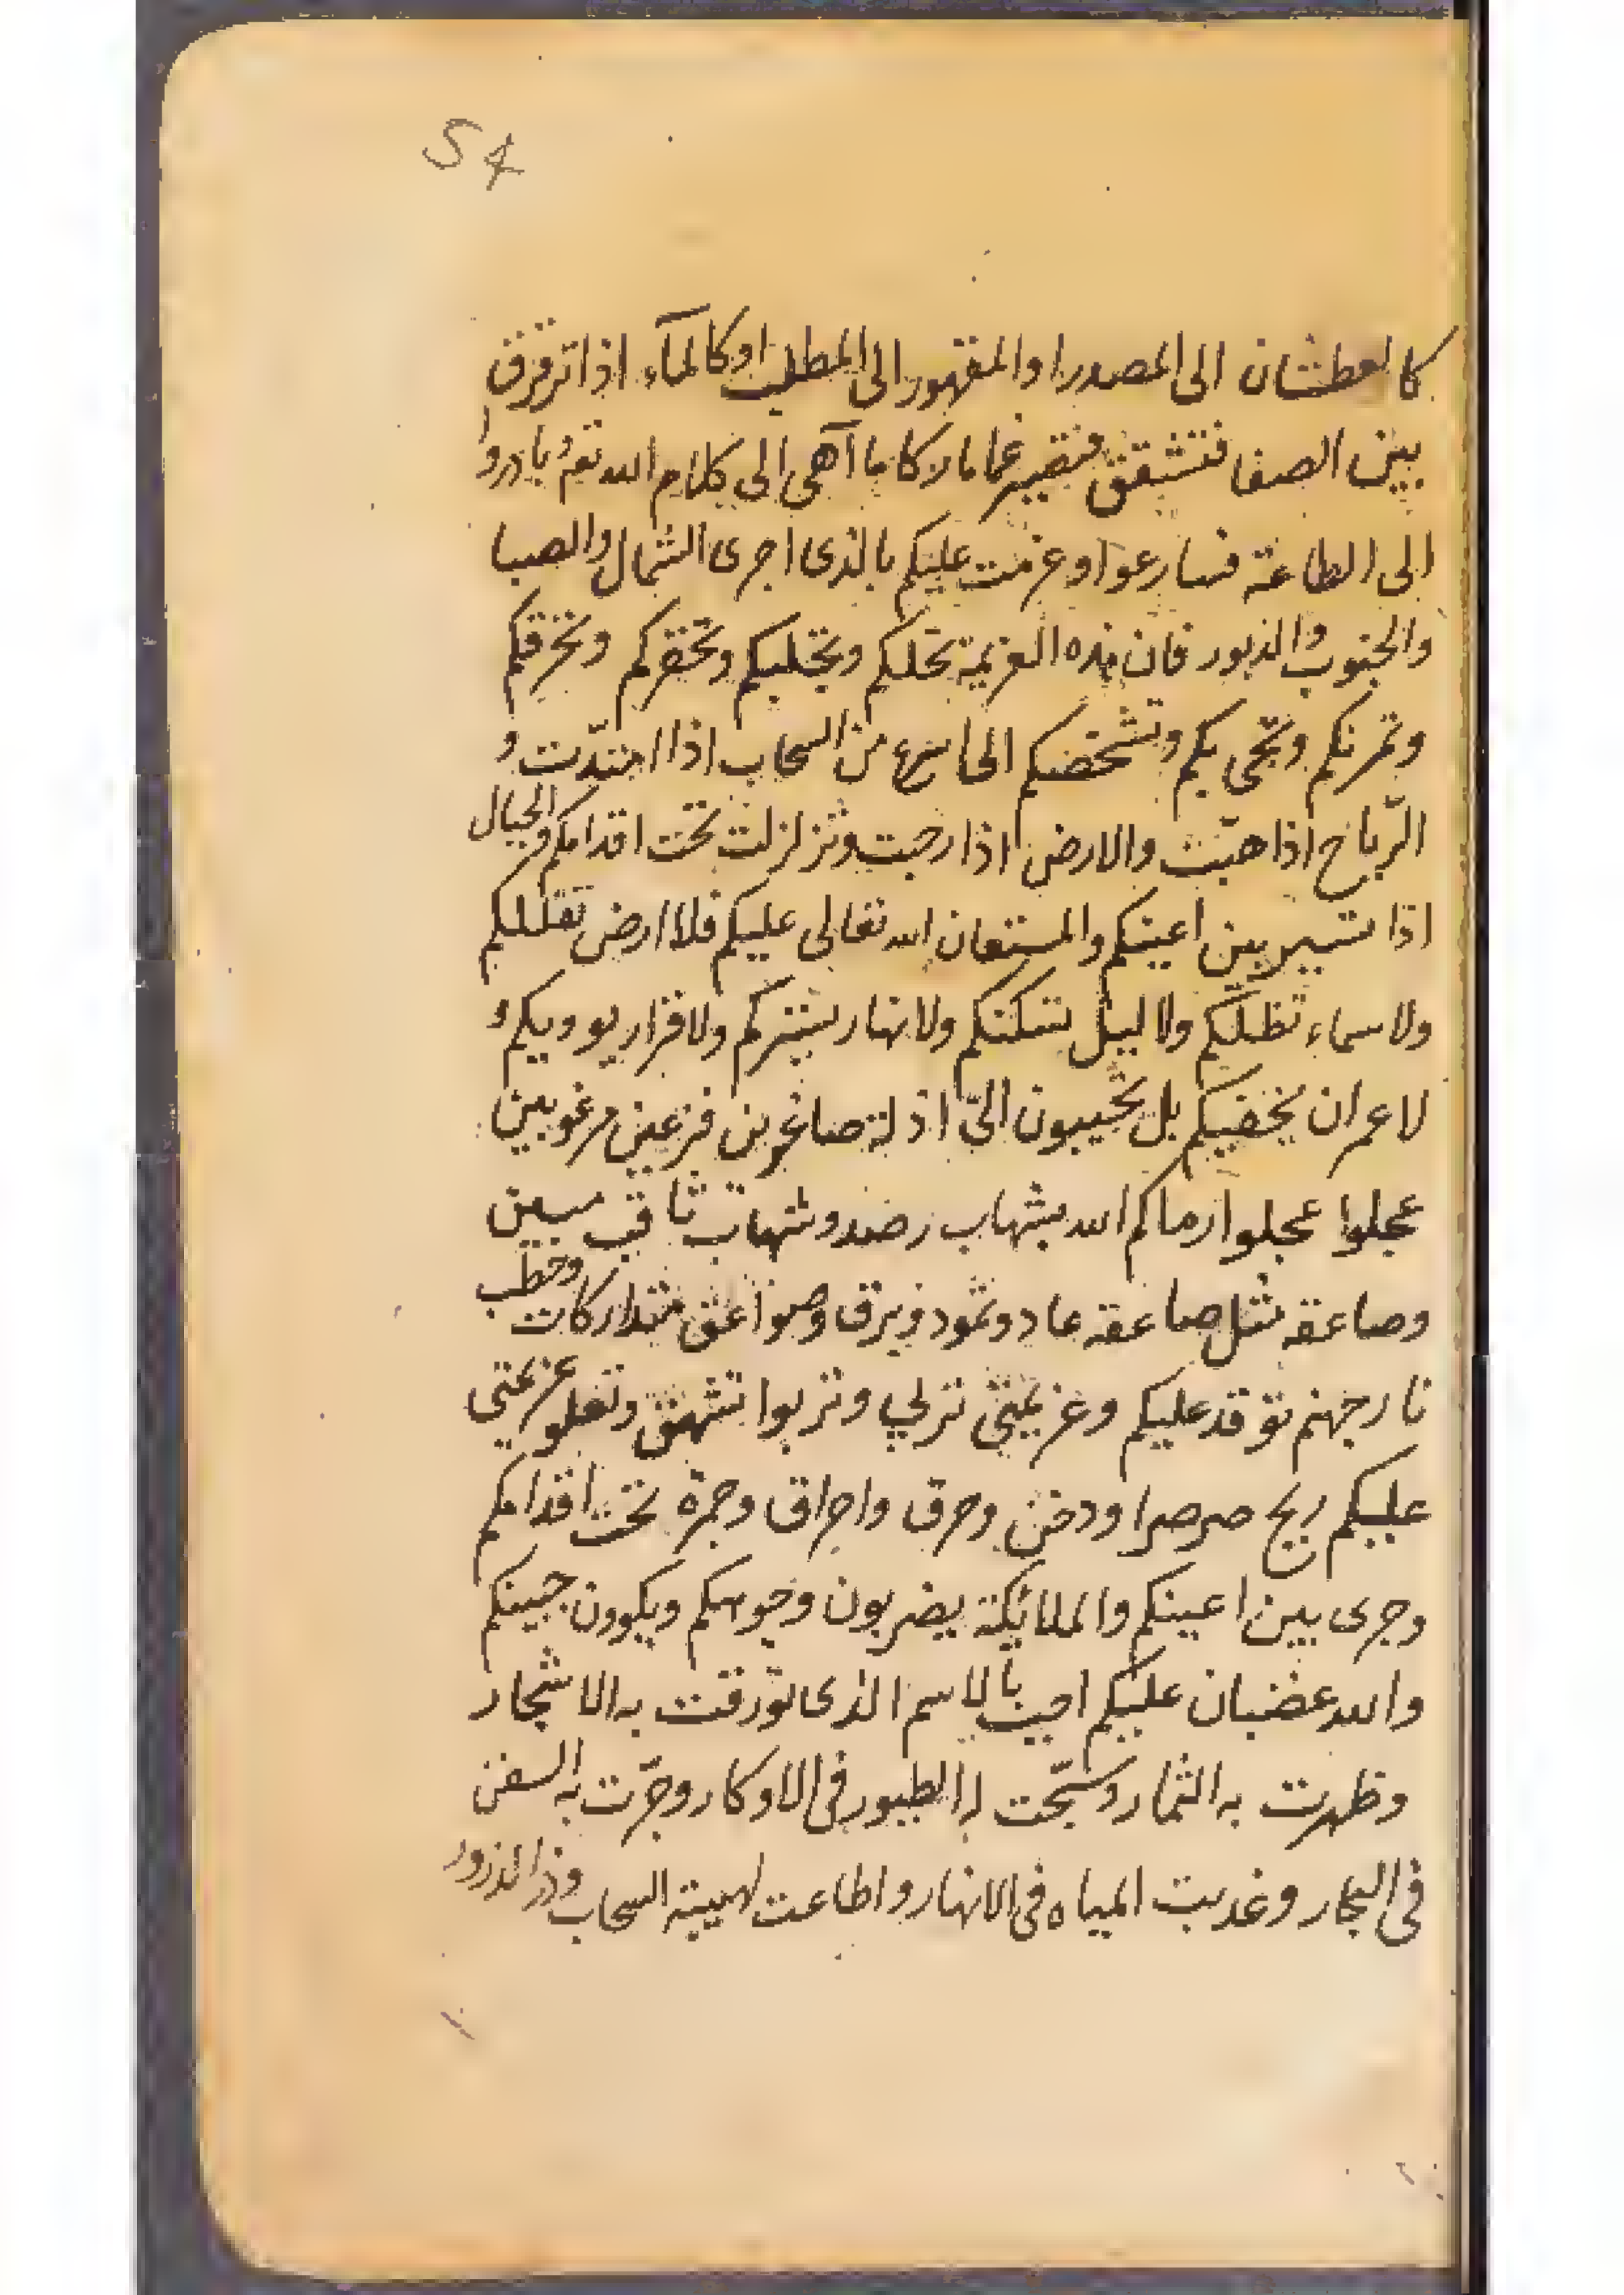 54
كالعطشان الى المصدر او المقهور الى المطلب او كالمآء اذا ترقرق
بين الصفا فتشقق فتصير غماما ركاما آهى الى كلام الله تعم وبادروا
الى الطاعة فسارعوا وعزمت عليكم بالذى اجرى الشمال والصبا
والجنوب والدبور فان هذه العزيمة تحلكم وتجلبكم وتحضركم وتحرقكم
وتمرنكم وتجى بكم وتشخصكم الى اسرع من السحاب اذا امتدّت و
الرّياح اذا هبّت والارض اذا رجت وتزلزلت تحت اقدامكم والجبال
اذا تسير بين اعينكم والمستعان الله تعالى عليكم فلا ارض تقللكم
ولا سماء تظلكم ولا ليل يسكنكم ولا نهار يستركم ولا قرار يوويكم و
لا عمران يخفيكم بل تجيبون الىّ اذلة صاغرين فزعين مرعوبين
عجلوا عجلوا ارماكم الله بشهاب رصد وشهاب ثاقب مبين
وصاعقة مثل صاعقة عاد وثمود وبرق وصواعق متداركات وحطب
نار جهنم توقد عليكم وعزيمتى وتربوا تشهق وتعلو عزيمتى
عليكم ريح صرصرا ودخن وحرق واحراق وجمرة تحت اقدامكم
وجرى بين اعينكم والملائكة يضربون وجوهكم ويكوون جبينكم
والله غضبان عليكم اجيب بالاسم الذى تورقت به الاشجار
وظهرت به الثمار وسبّحت له الطيور فى الاوكار وجرّت به السفن
فى البحار وغدبت المياه فى الانهار واطاعت لهيبة السحاب